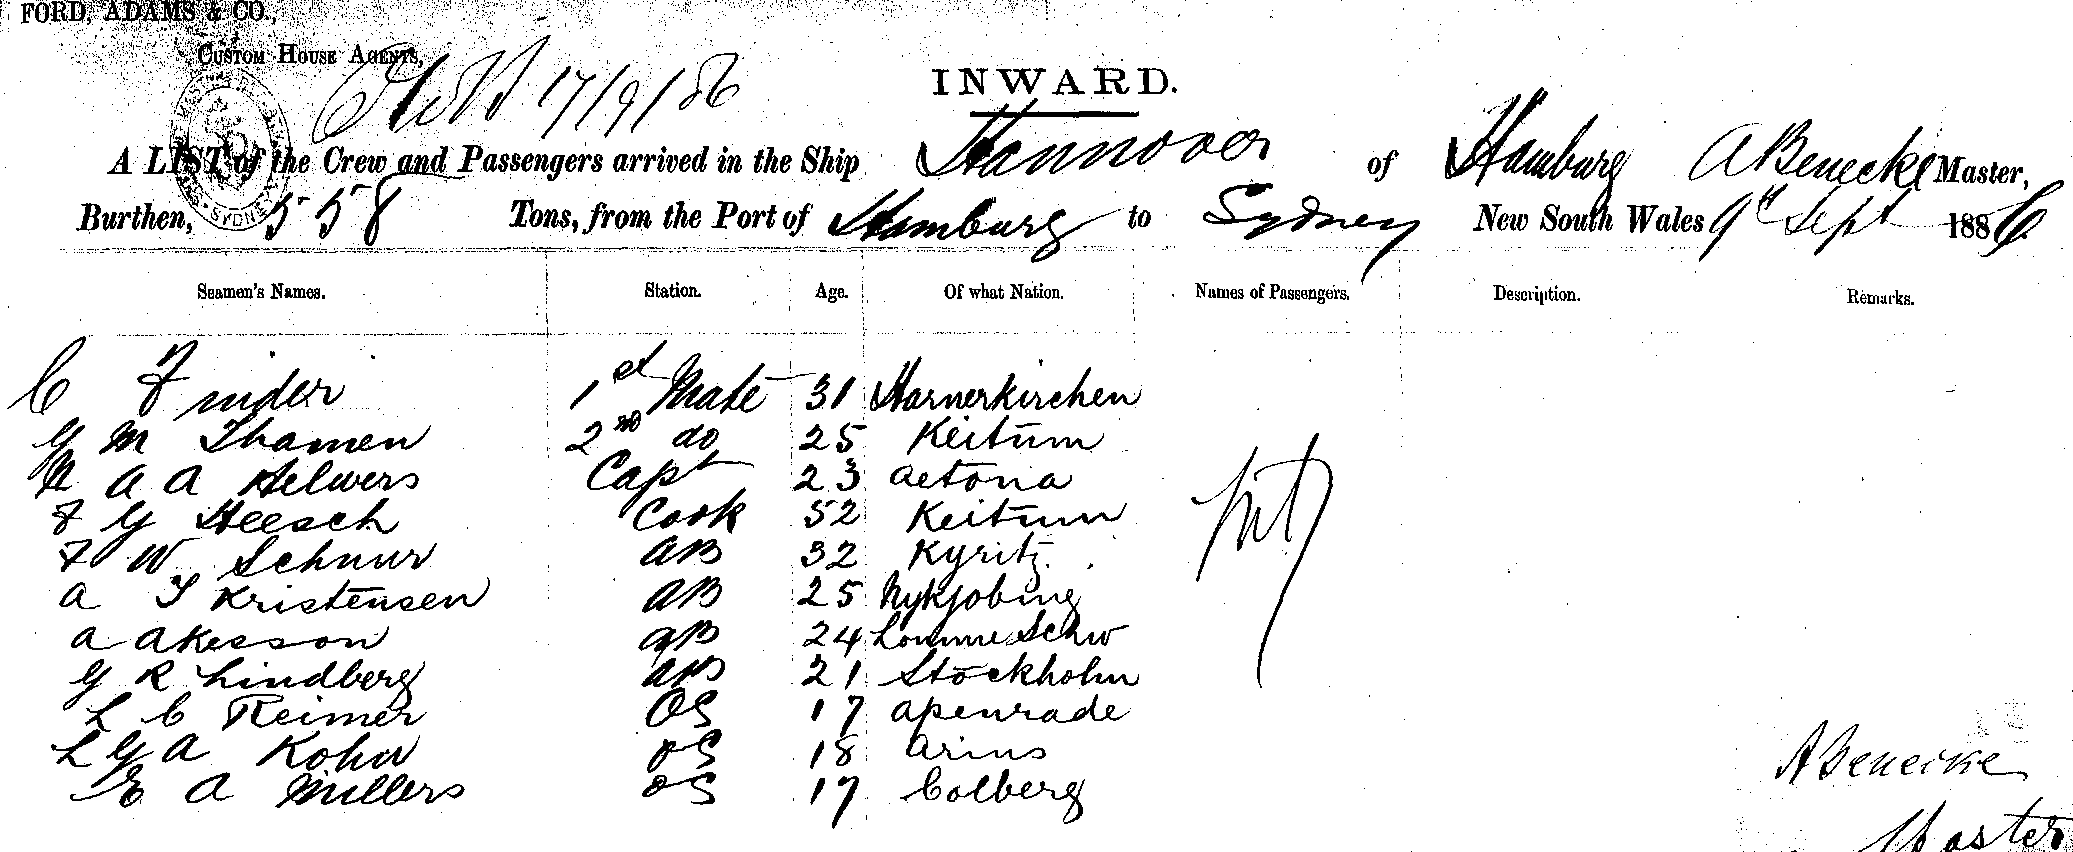 FORD, ADAMS & CO.,
CUSTOM HOUSE AGENTS,
17/9/86
INWARD.
A LIST of the Crew and Passengers arrived in the Ship Hannover of Hamburg A Benecke Master,
Burthen, 558 Tons, from the Port of Hamburg to Sydney New South Wales 9th Sept 1886
Seamen's Names. Station. Age. Of what Nation. Names of Passengers. Description. Remarks.
C 1st Mate 31 Harnerkirchen
G M Thamen 2nd do 25 Keitum
N A A Helwers Capt 23 Aetona
F G Heesch Cook 52 Keitum
F W Schnur AB 32 Kyritz
A J Kristensen AB 25 Nykjobing
A Akesson AB 24 Schw
G R Lindberg AB 21 Stockholm
L C Reimer OS 17 Apenrade
L G A Kohn OS 18 Arins
E A Millers OS 17 Colberg
A Benecke
Master